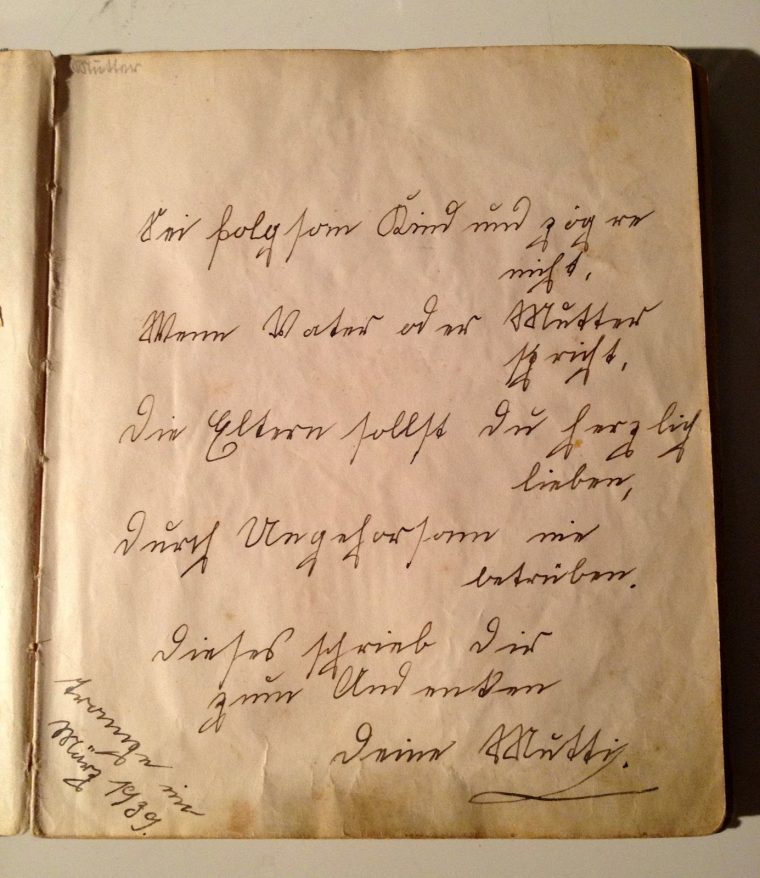 Mutter
Sei folgsam Kind und zögre
nicht,
Wenn Vater oder Mutter
spricht,
Die Eltern sollst du herzlich
lieben,
durch Ungehorsam nie
betrüben.
Dieses schrieb dir
zum Andenken
deine Mutti.
im
März 1939.